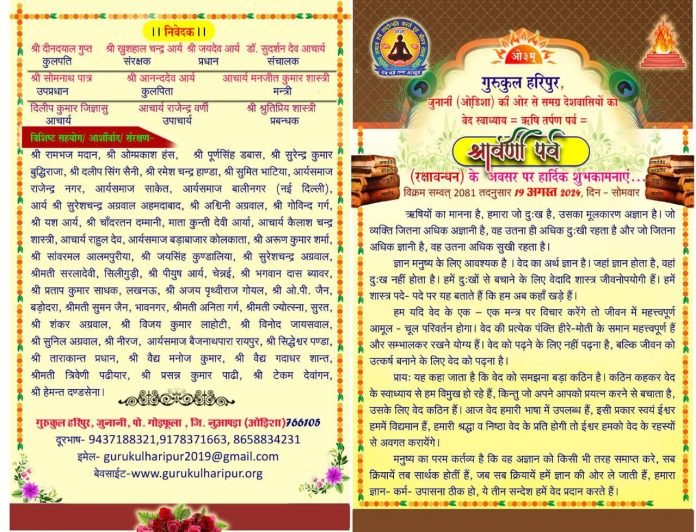 ।। निवेदक ।।
श्री दीनदयाल गुप्त श्री खुशहाल चन्द्र आर्य श्री जयदेव आर्य डॉ. सुदर्शन देव आचार्य
कुलपति संरक्षक प्रधान संचालक
श्री सोमनाथ पात्र श्री आनन्ददेव आर्य आचार्य मनजीत कुमार शास्त्री
उपप्रधान कुलपिता मन्त्री
दिलीप कुमार जिज्ञासु आचार्य राजेन्द्र वर्णी श्री श्रुतिप्रिय शास्त्री
आचार्य उपाचार्य प्रबन्धक
विशिष्ट सहयोग/ आर्शीवाद/ संरक्षण-
श्री रामभज मदान, श्री ओमप्रकाश हंस, श्री पूर्णसिंह डबास, श्री सुरेन्द्र कुमार
बुद्धिराजा, श्री दलीप सिंग सैनी, श्री रमेश चन्द्र हाण्डा, श्री सुमित भाटिया, आर्यसमाज
राजेन्द्र नगर, आर्यसमाज साकेत, आर्यसमाज बालीनगर (नई दिल्ली),
आर्य श्री सुरेशचन्द्र अग्रवाल अहमदाबाद, श्री अश्विनी अग्रवाल, श्री गोविन्द गर्ग,
श्री यश आर्य, श्री चाँदरतन दम्मानी, माता कुन्ती देवी आर्या, आचार्य कैलाश चन्द्र
शास्त्री, आचार्य राहुल देव, आर्यसमाज बड़ाबाजार कोलकाता, श्री अरूण कुमार शर्मा,
श्री सांवरमल आलमपुरीया, श्री जयसिंह कुण्डालिया, श्री सुरेशचन्द्र अग्रवाल,
श्रीमती सरलादेवी, सिलीगुड़ी, श्री पीयुष आर्य, चेन्नई, श्री भगवान दास ब्यावर,
श्री प्रताप कुमार साधक, लखनऊ, श्री अजय पृथ्वीराज गोयल, श्री ओ.पी. जैन,
बड़ोदरा, श्रीमती सुमन जैन, भावनगर, श्रीमती अनिता गर्ग, श्रीमती ज्योत्स्ना, सुरत,
श्री शंकर अग्रवाल, श्री विजय कुमार लाहोटी, श्री विनोद जायसवाल,
श्री सुनिल अग्रवाल, श्री नीरज, आर्यसमाज बैजनाथपारा रायपुर, श्री सिद्धेश्वर पण्डा,
श्री ताराकान्त प्रधान, श्री वैद्य मनोज कुमार, श्री वैद्य गदाधर शान्त,
श्रीमती त्रिवेणी पढीयार, श्री प्रसन्न कुमार पाढी, श्री टेकम देवांगन,
श्री हेमन्त दण्डसेना।
गुरुकुल हरिपुर, जुनानी, पो. गोड़फूला , जि. नुआपड़ा (ओड़िशा)766105
दूरभाष- 9437188321,9178371663, 8658834231
इमेल- gurukulharipur2019@gmail.com
बेवसाईट-www.gurukulharipur.org
ओ३म्
गुरुकुल हरिपुर,
जुनानी (ओड़िशा) की ओर से समग्र देशवासियों को
वेद स्वाध्याय = ऋषि तर्पण पर्व =
श्रावणी पर्व
(रक्षावन्धन) के अवसर पर हार्दिक शुभकामनाएं...
विक्रम सम्वत् 2081 तदनुसार 19 अगस्त 2024, दिन - सोमवार
ऋषियों का मानना है, हमारा जो दु:ख है, उसका मूलकारण अज्ञान है। जो
व्यक्ति जितना अधिक अज्ञानी है, वह उतना ही अधिक दु:खी रहता है और जो जितना
अधिक ज्ञानी है, वह उतना अधिक सुखी रहता है।
ज्ञान मनुष्य के लिए आवश्यक है । वेद का अर्थ ज्ञान है। जहां ज्ञान होता है, वहां
दु:ख नहीं होता है। हमें दु:खों से बचाने के लिए वेदादि शास्त्र जीवनोपयोगी हैं। हमें
शास्त्र पदे- पदे पर यह बताते हैं कि हम अब कहाँ खड़े हैं।
हम यदि वेद के एक – एक मन्त्र पर विचार करेंगे तो जीवन में महत्त्वपूर्ण
आमूल - चूल परिवर्तन होगा। वेद की प्रत्येक पंक्ति हीरे-मोती के समान महत्त्वपूर्ण हैं
और सम्भालकर रखने योग्य हैं। वेद को पढ़ने के लिए नहीं पढ़ना है, बल्कि जीवन को
उत्कर्ष बनाने के लिए वेद को पढ़ना है।
प्राय: यह कहा जाता है कि वेद को समझना बड़ा कठिन है। कठिन कहकर वेद
के स्वाध्याय से हम विमुख हो रहे हैं, किन्तु जो अपने आपको प्रयत्न करने से बचाता है,
उसके लिए वेद कठिन हैं। आज वेद हमारी भाषा में उपलब्ध हैं, इसी प्रकार स्वयं ईश्वर
हममें विद्यमान हैं, हमारी श्रद्धा व निष्ठा वेद के प्रति होगी तो ईश्वर हमको वेद के रहस्यों
से अवगत करायेंगे।
मनुष्य का परम कर्तव्य है कि वह अज्ञान को किसी भी तरह समाप्त करे, सब
क्रियायें तब सार्थक होतीं हैं, जब सब क्रियायें हमें ज्ञान की ओर ले जाती हैं, हमारा
ज्ञान- कर्म- उपासना ठीक हो, ये तीन सन्देश हमें वेद प्रदान करते हैं।